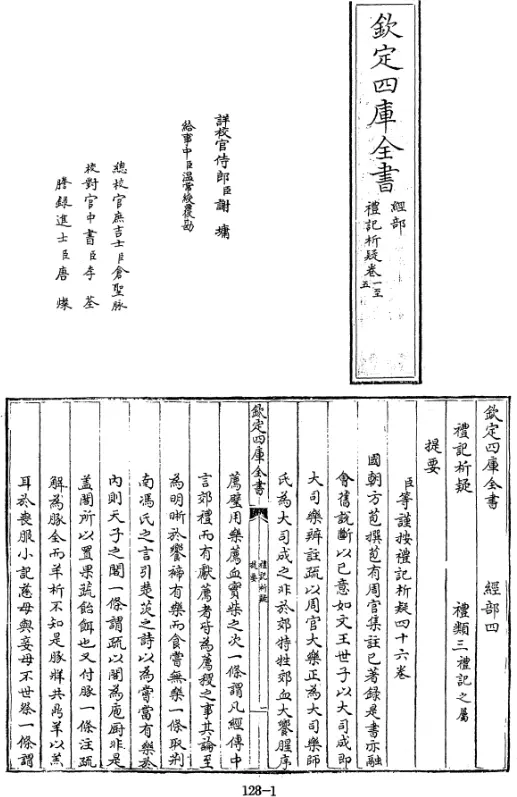 欽定四庫全書
經部
禮記析疑卷一至
五
詳校官侍郎臣謝墉
給事中臣溫常綬覆勘
總校官庶吉士臣倉聖脉
校對官中書臣李荃
謄錄進士臣唐燦
欽定四庫全書 經部四
禮記析疑 禮類三禮記之屬
提要
臣等謹按禮記析疑四十六卷
國朝方苞撰苞有周官集註已著錄是書亦融
會舊說斷以己意如文王世子以大司成即
大司樂辨註疏以周官大樂正為大司樂師
氏為大司成之非於郊特牲郊血大饗腥序
欽定四庫全書
禮記析疑
提要
一
薦璧用樂薦血實柴之次一條謂凡經傳中
言郊禮而有獻薦者皆為薦稷之事其論至
為明晰於饗禘有樂而食嘗無樂一條取荆
南馮氏之言引楚茨之詩以為嘗當有樂於
內則天子之閣一條謂疏以閣為庖厨非是
蓋閣所以置果蔬飴餌也又付豚一條注疏
解為豚全而羊析不知是豚牂共鼎羊以羔
耳於喪服小記慈母與妾母不世祭一條謂
128-1